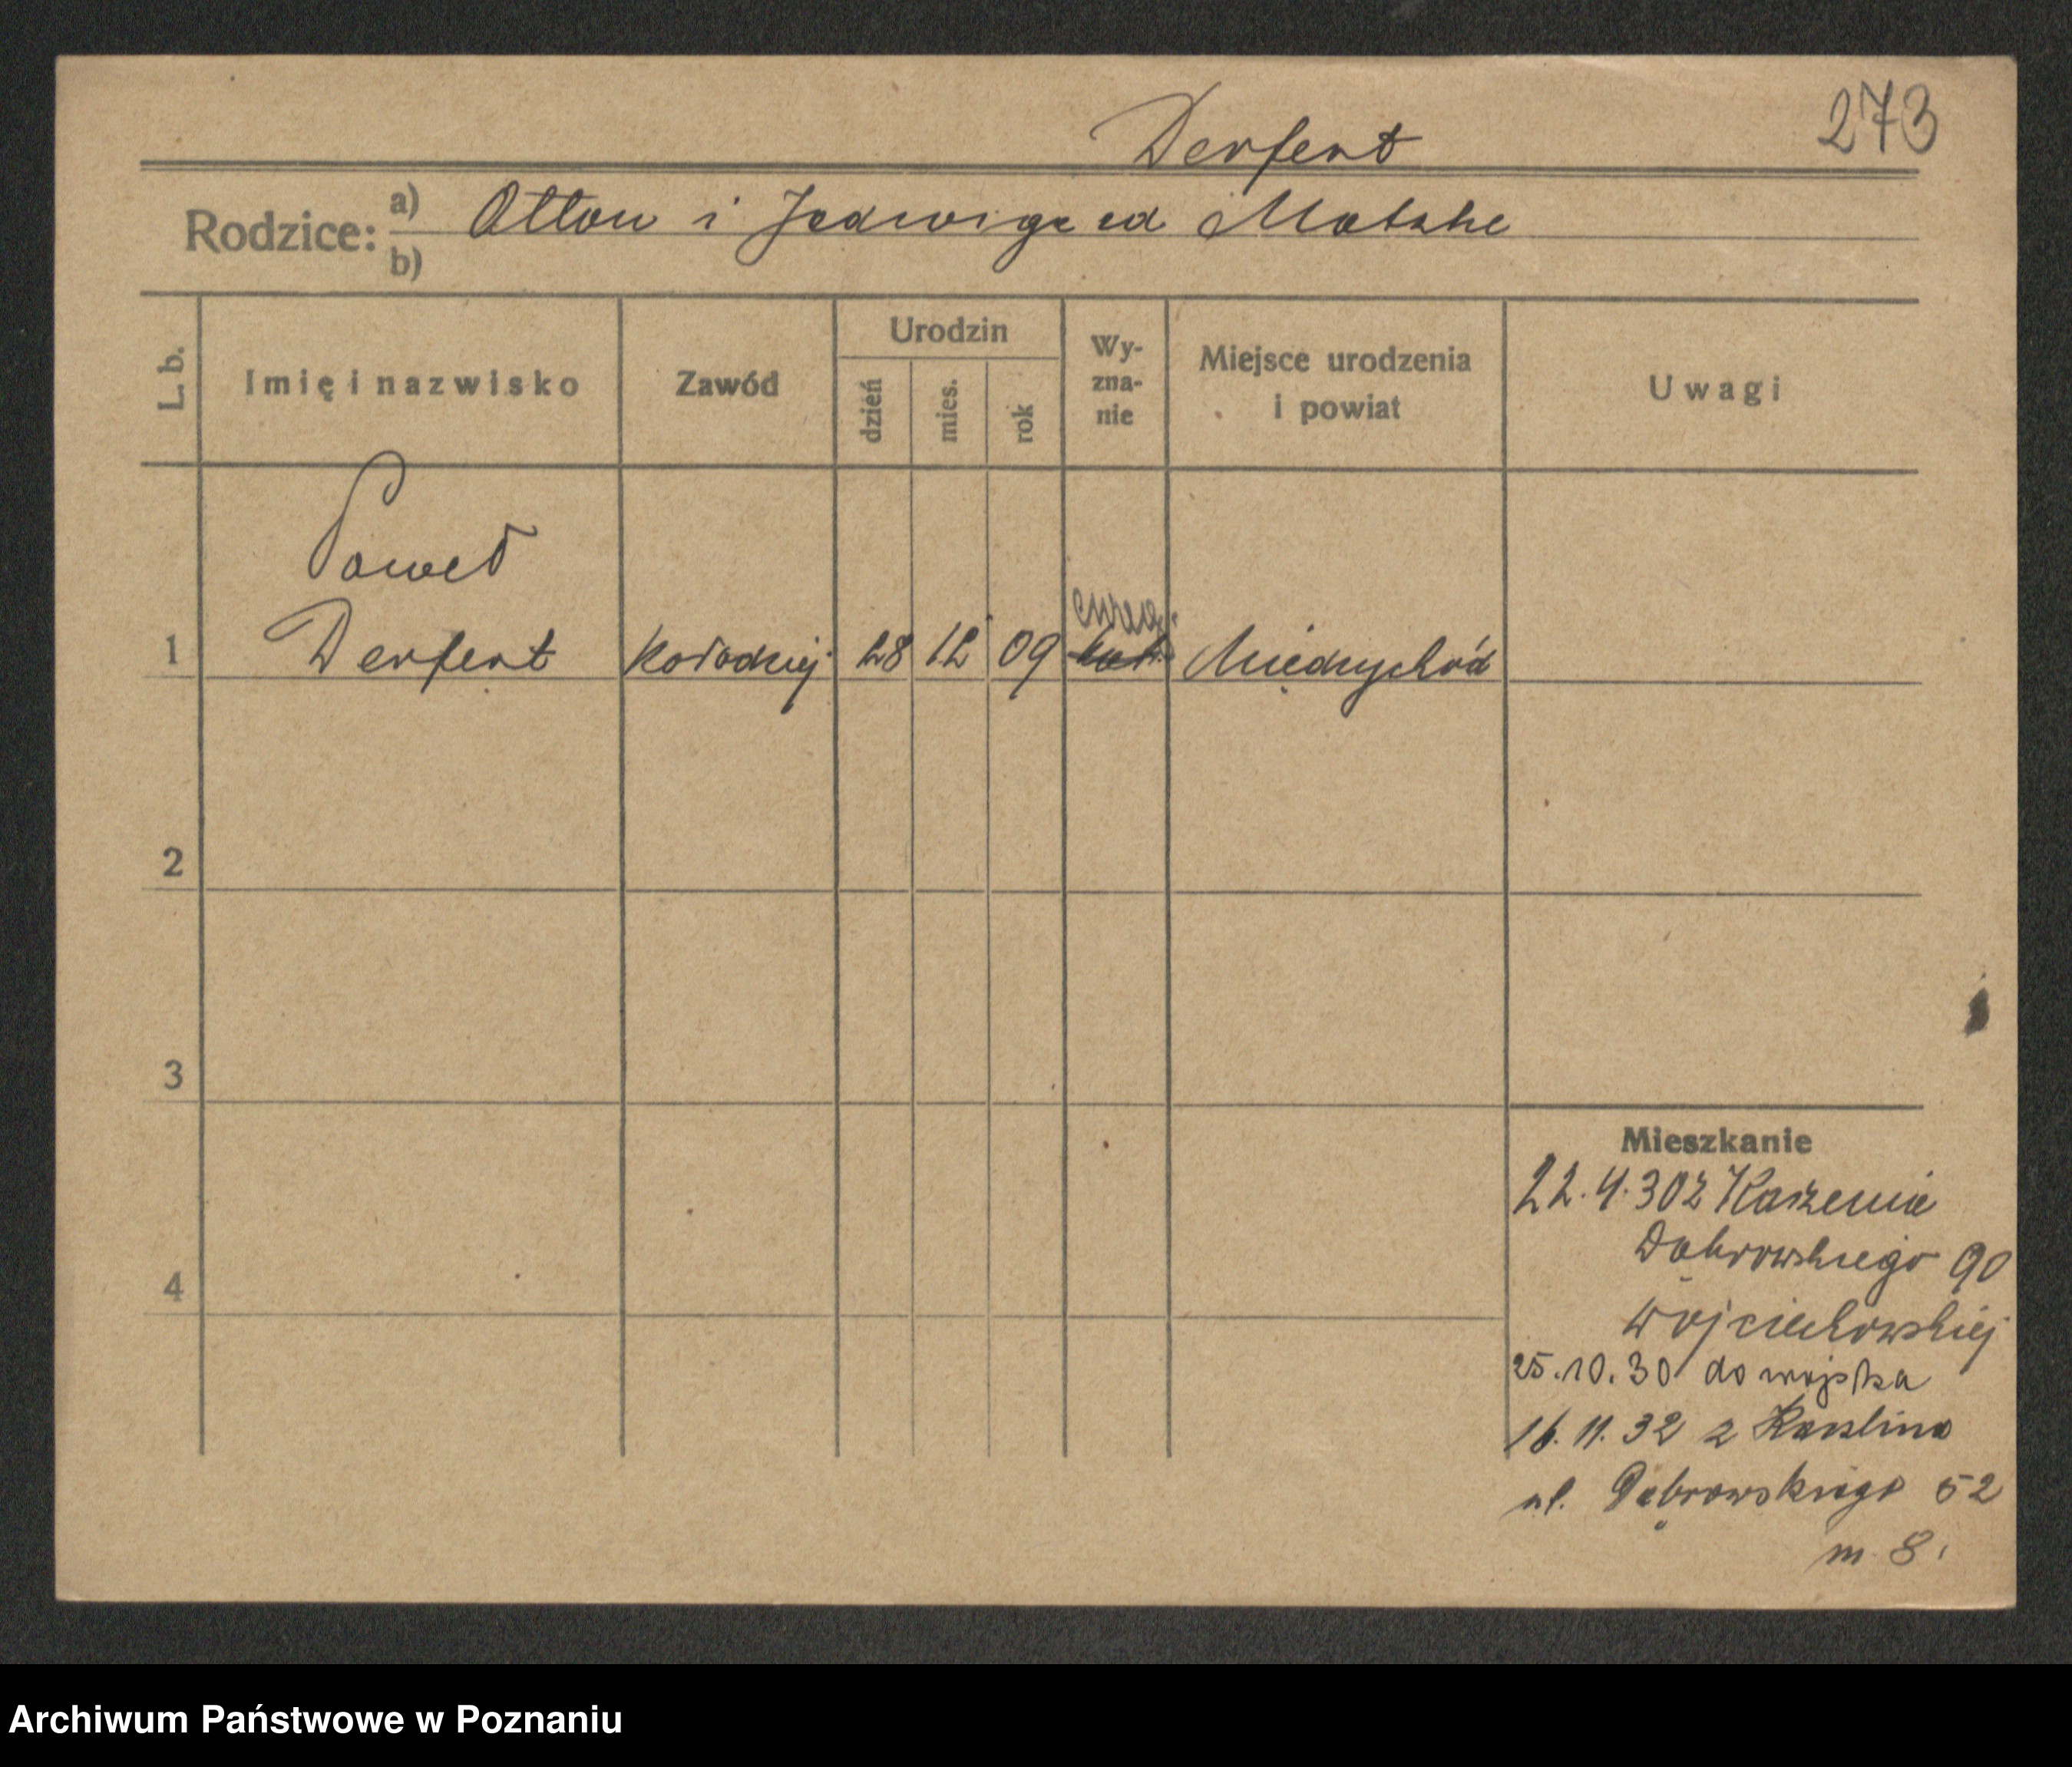 273
Derfert
Rodzice: a) Otton i Jadwiga zd Matzke
b)
L. b.
Imię i nazwisko
Zawód
Urodzin
dzień
mies.
rok
Wy-
zna-
nie
Miejsce urodzenia
i powiat
Uwagi
Paweł
ewang.
1 Derfert kołodziej 28 12 09 kat. Międzychód
2
3
4
Mieszkanie
22.4.30 z
Dąbrowskiego 90
Wojciechowskiej
25.10.30 do wojska
16.11.32 z
ul. Dąbrowskiego 52
m 8.
Archiwum Państwowe w Poznaniu